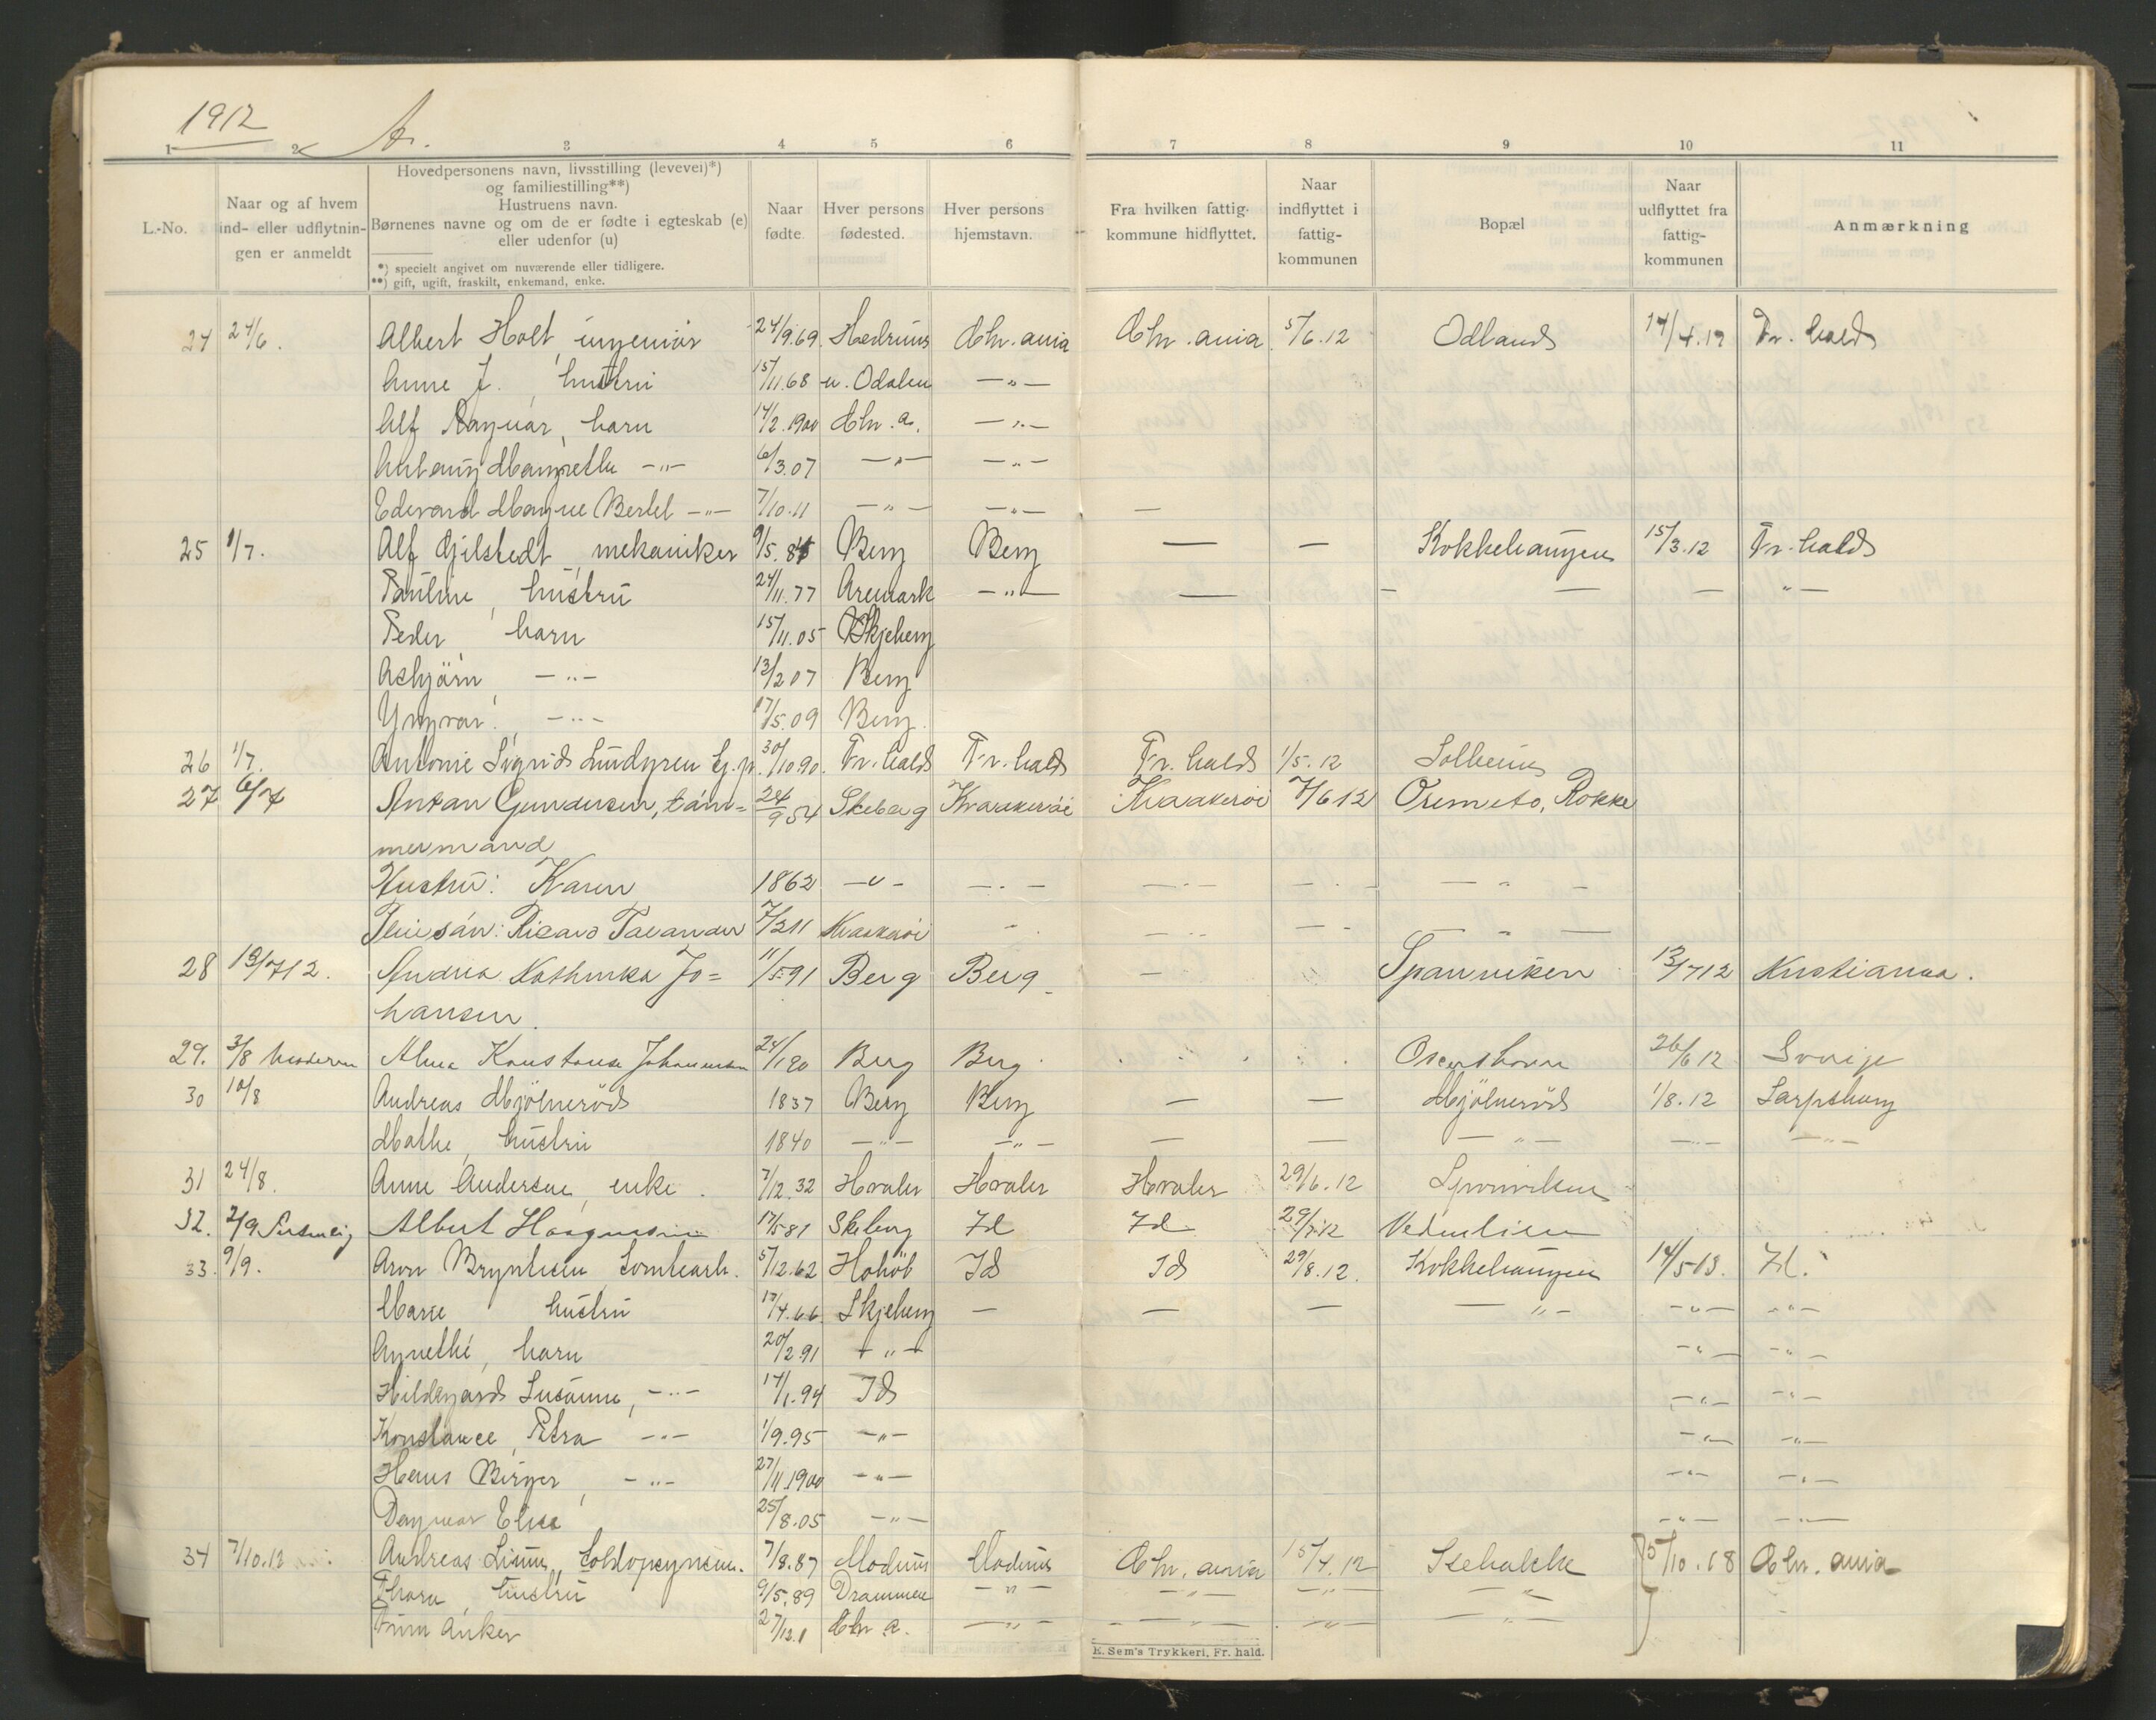 1912 A.
1 2 3 4 5 6 7 8 9 10 11
L.-No.
Naar og af hvem
ind- eller udflytnin-
gen er anmeldt
Hovedpersonens navn, livsstilling (levevei)*)
og familiestilling**)
Hustruens navn.
Børnenes navne og om de er fødte i egteskab (e)
eller udenfor (u)
*) specielt angivet om nuværende eller tidligere.
**) gift, ugift, fraskilt, enkemand, enke.
Naar
fødte.
Hver persons
fødested.
Hver persons
hjemstavn.
Fra hvilken fattig-
kommune hidflyttet.
Naar
indflyttet i
fattig-
kommunen
Bopæl
Naar
udflyttet fra
fattig-
kommunen
Anmærkning
24 24/6. Albert Holt, ingeniör 24/9.69. Hedrum Chr.ania Chr.ania 5/6.12 Odland 14/4.19 Fr.hald
Anne J., hustru 15/11.68 n. Odalen —"—
Alf Ragnar, barn 14/2.1900 Chr.a. —"—
Margrethe —"— 6/3.07 —"— —"—
Edevard Magne Bertel —"— 7/10.11 —"— —"— —
25 1/7. Alf Gjilstedt, mekaniker 9/5.84 Berg Berg — — Kokkehaugen 15/3.12 Fr.hald
Pauline, hustru 24/11.77 Aremark —"— — — — — "—
Peder, barn 15/11.05 Skjeberg
Asbjörn —"— 13/2 07 Berg
Yngvar, —"— 17/5.09 Berg.
26 1/7. Antonie Sigrid Lindgren 30/10.90. Fr.hald Fr.hald Fr.hald 1/5.12 Solheim
27 6/7 Anton Gundersen, töm= 24/9 54 Skeberg Kraakeröi Kraakeröi 7/6 12 Rokke
mermand
Hustru: Karen 1862 —"— —"— —"— —"— —"—
Pleiesön: Ricard 7/2 11 Kraakeröi
28 13/7 12. Andrea Kathinka Jo= 11/5 91 Berg Berg — Sponviken 13/7 12 Kristiania.
hansen.
29. 3/8 Alma Konstanse Johannesen 24/1 90 Berg Berg 26/6 12 Sverige
30 10/8 Andreas Mjölneröd 1837 Berg Berg — — Mjölneröd 1/8.12 Sarpsborg
Mathe, hustru 1840 —"— —"— — — —"— —"— —"—
31 24/8. Anne Andersen, enke. 7/12.32 Hvaler Hvaler Hvaler 29/6.12 Sponviken
32. 2/9 Albert 17/5 81 Skeberg Id Id Vedenlien
33. 9/9. Aron Bryntesen, Tomtearb. 5/12.62 Hobøl Id Id 29/8.12. Kokkehaugen 14/5 13. Id.
Marie hustru 17/4.66. Skjeberg — — — —"— —"— —"—
Agnethe, barn 20/2.91 —"— —"— —"—
Hildegard Susanne, —"— 14/1.94 Id —"— —"—
Konstance, Petra —"— 1/9.95 —"— —"— —"—
Hans Birger, —"— 27/11.1900 —"— —"— —"—
Dagmar Elise 25/8.05 —"— —"— —"—
34 7/10.12 Andreas Lium, toldopsynsm. 7/8.87 Modum Modum Chr.ania 15/4.12 Isebakke 5/10.18 Chr.ania
Thora, hustru 9/5.89 Drammen —"— —"— —"— —"—
Finn Anker 27/12. Chr a. —"— —"— —"— —"—
E. Sem's Trykkeri, Fr. hald.